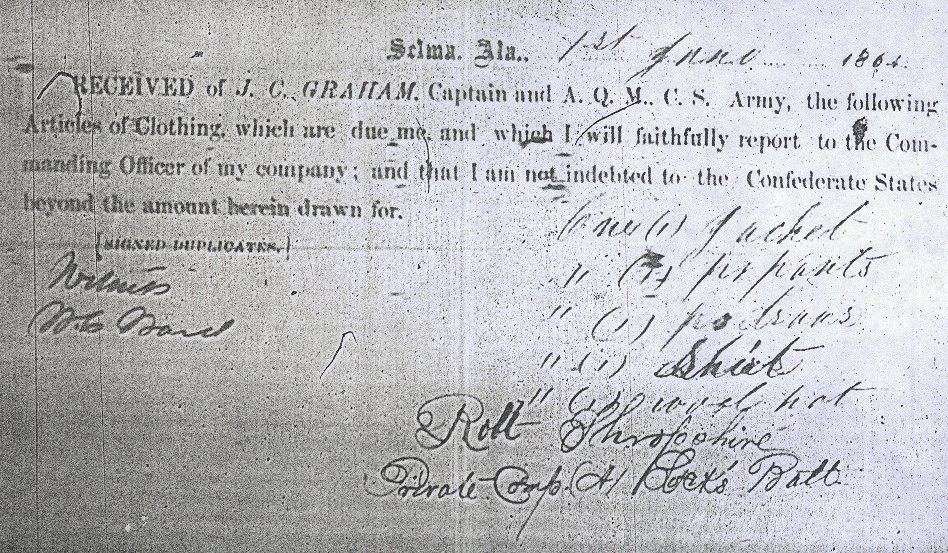 Selma, Ala., 1st June 1864.
RECEIVED of J. C. GRAHAM, Captain and A. Q. M., C. S. Army, the following
Articles of Clothing, which are due me, and which I will faithfully report to the Com-
manding Officer of my company; and that I am not indebted to the Confederate States
beyond the amount herein drawn for.
[SIGNED DUPLICATES.]
One (1) Jacket
" (1) pr pants
" (1) pr draws
" (1) Shirt
" (1) wool hat
Witness
Ward
Robt Shropshire
Private Comp. A Batt